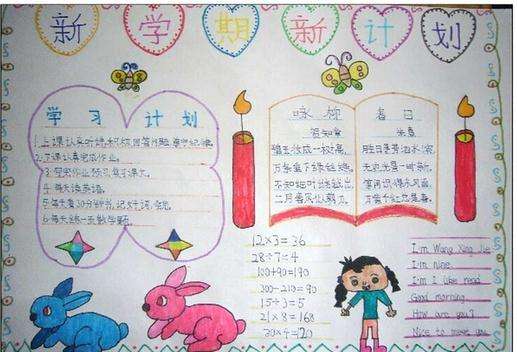 新学期新计划
学习计划
1.上课认真听,积极回答问题,遵守纪律。
2.下课认真完成作业。
作业预习,复习课文。
4.每天读英语。
5.每天看30分钟书,记好词,好句。
6.每天练一页数学题。
咏柳
贺知章
碧玉妆成一树高,
万条垂下绿丝绦。
不知细叶谁裁出,
二月春风似剪刀。
春日
朱熹
胜日寻芳泗水滨,
无边光景一时新。
等闲识得东风面,
万紫千红总是春。
12×3=36
28÷7=4
100+90=190
300-210=90
15÷3=5
21×8=168
30×4=120
I'm Wang Xing Jie
I'm nine
I'm I like read
Good morning
How are you?
Nice to meet you